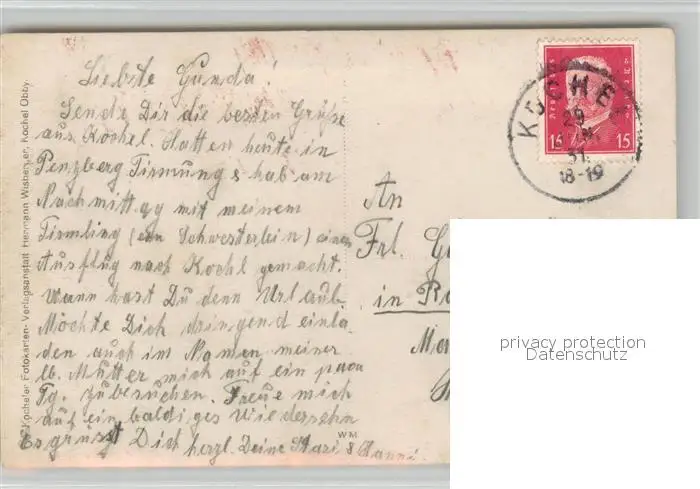 Liebste Gunda!
Sende Dir die besten Grüße
aus Kochel. Hatten heute in
Penzberg Firmung & hab am
Nachmittag mit meinem
Firmling (ein Schwesterlein) einen
Ausflug nach Kochl gemacht.
Wann hast Du denn Urlaub.
Möchte Dich dringend einla-
den auch im Namen meiner
lb. Mutter mich auf ein paar
Tg. zu besuchen. Freue mich
auf ein baldiges Wiedersehn
Es grüsst Dich herzl. Deine & Hanni
WM
Kochler Fotokarten-Verlagsanstalt Hermann Wisberger, Kochel Obby.
KOCHEL
29
31
18-19
Deutsches Reich
15 15
An
Frl.
in
privacy protection
Datenschutz